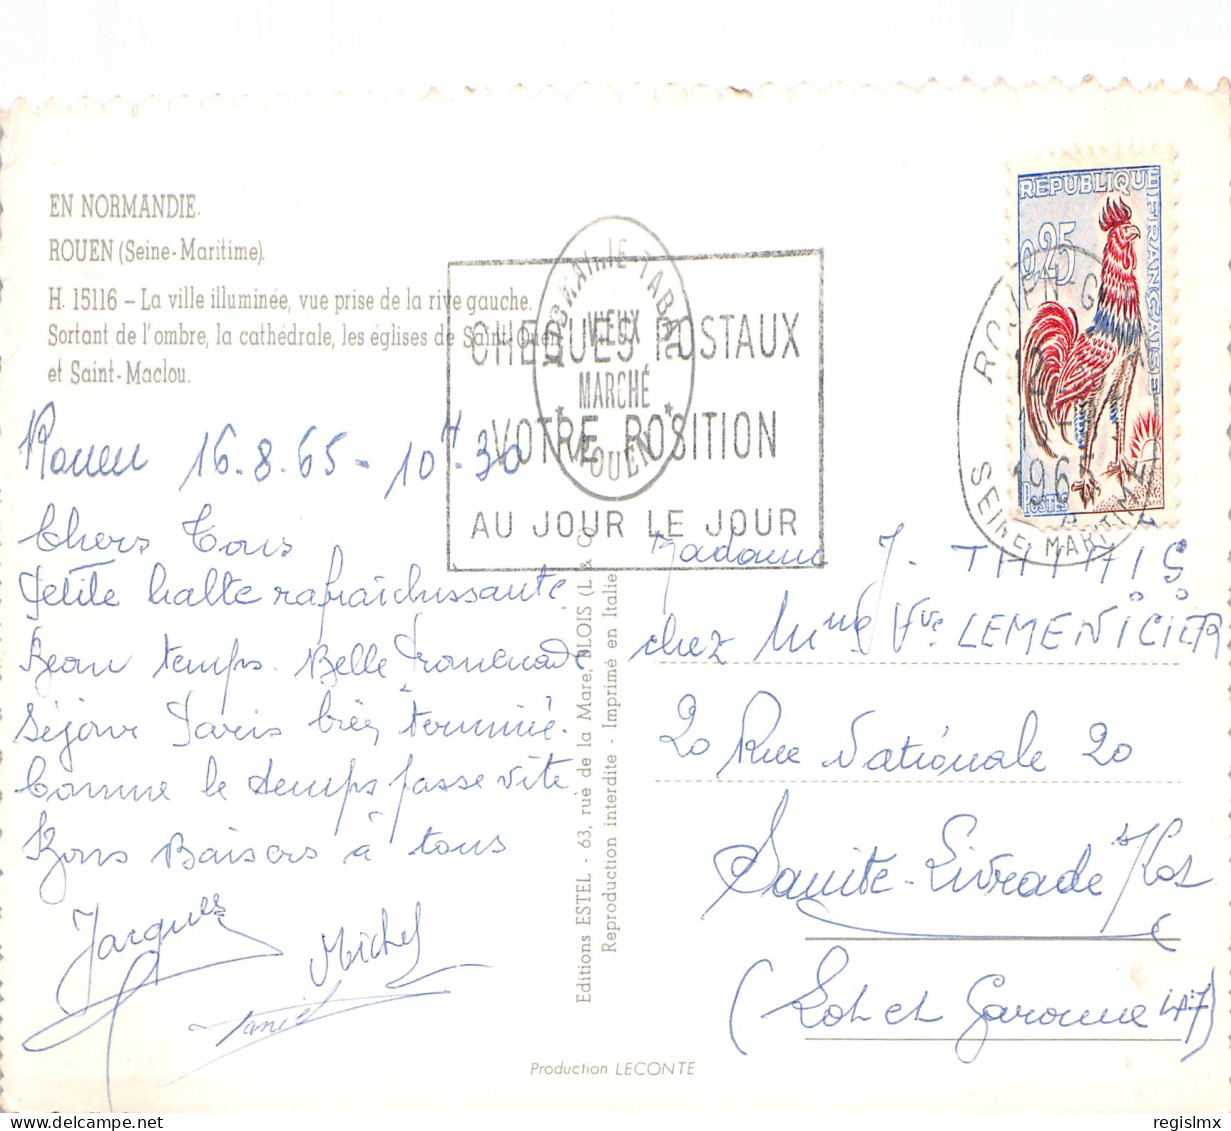 EN NORMANDIE.
ROUEN (Seine-Maritime).
H. 15116 – La ville illuminée, vue prise de la rive gauche.
Sortant de l'ombre, la cathédrale, les églises de Saint-Ouen
et Saint-Maclou.
TABAC
VIEUX
MARCHÉ
ROUEN
CHEQUES POSTAUX
VOTRE POSITION
AU JOUR LE JOUR
REPUBLIQUE FRANÇAISE
0,25
POSTES
SEINE MARITIME
Rouen 16.8.65 - 10H.30
Chers Tous
Petite halte rafraîchissante
Beau temps. Belle Promenade
Séjour Paris bien terminé.
Comme le temps passe vite.
Bons Baisers à tous
Jacques
Michel
Daniel
Madame J. THINIS
chez Mme Vve LEMENICIER
20 Rue Nationale 20
Sainte-Livrade s/Lot
(Lot et Garonne 47)
Editions ESTEL - 63, rue de la Mare, BLOIS (L & C)
Reproduction interdite - Imprimé en Italie
Production LECONTE
regislmx